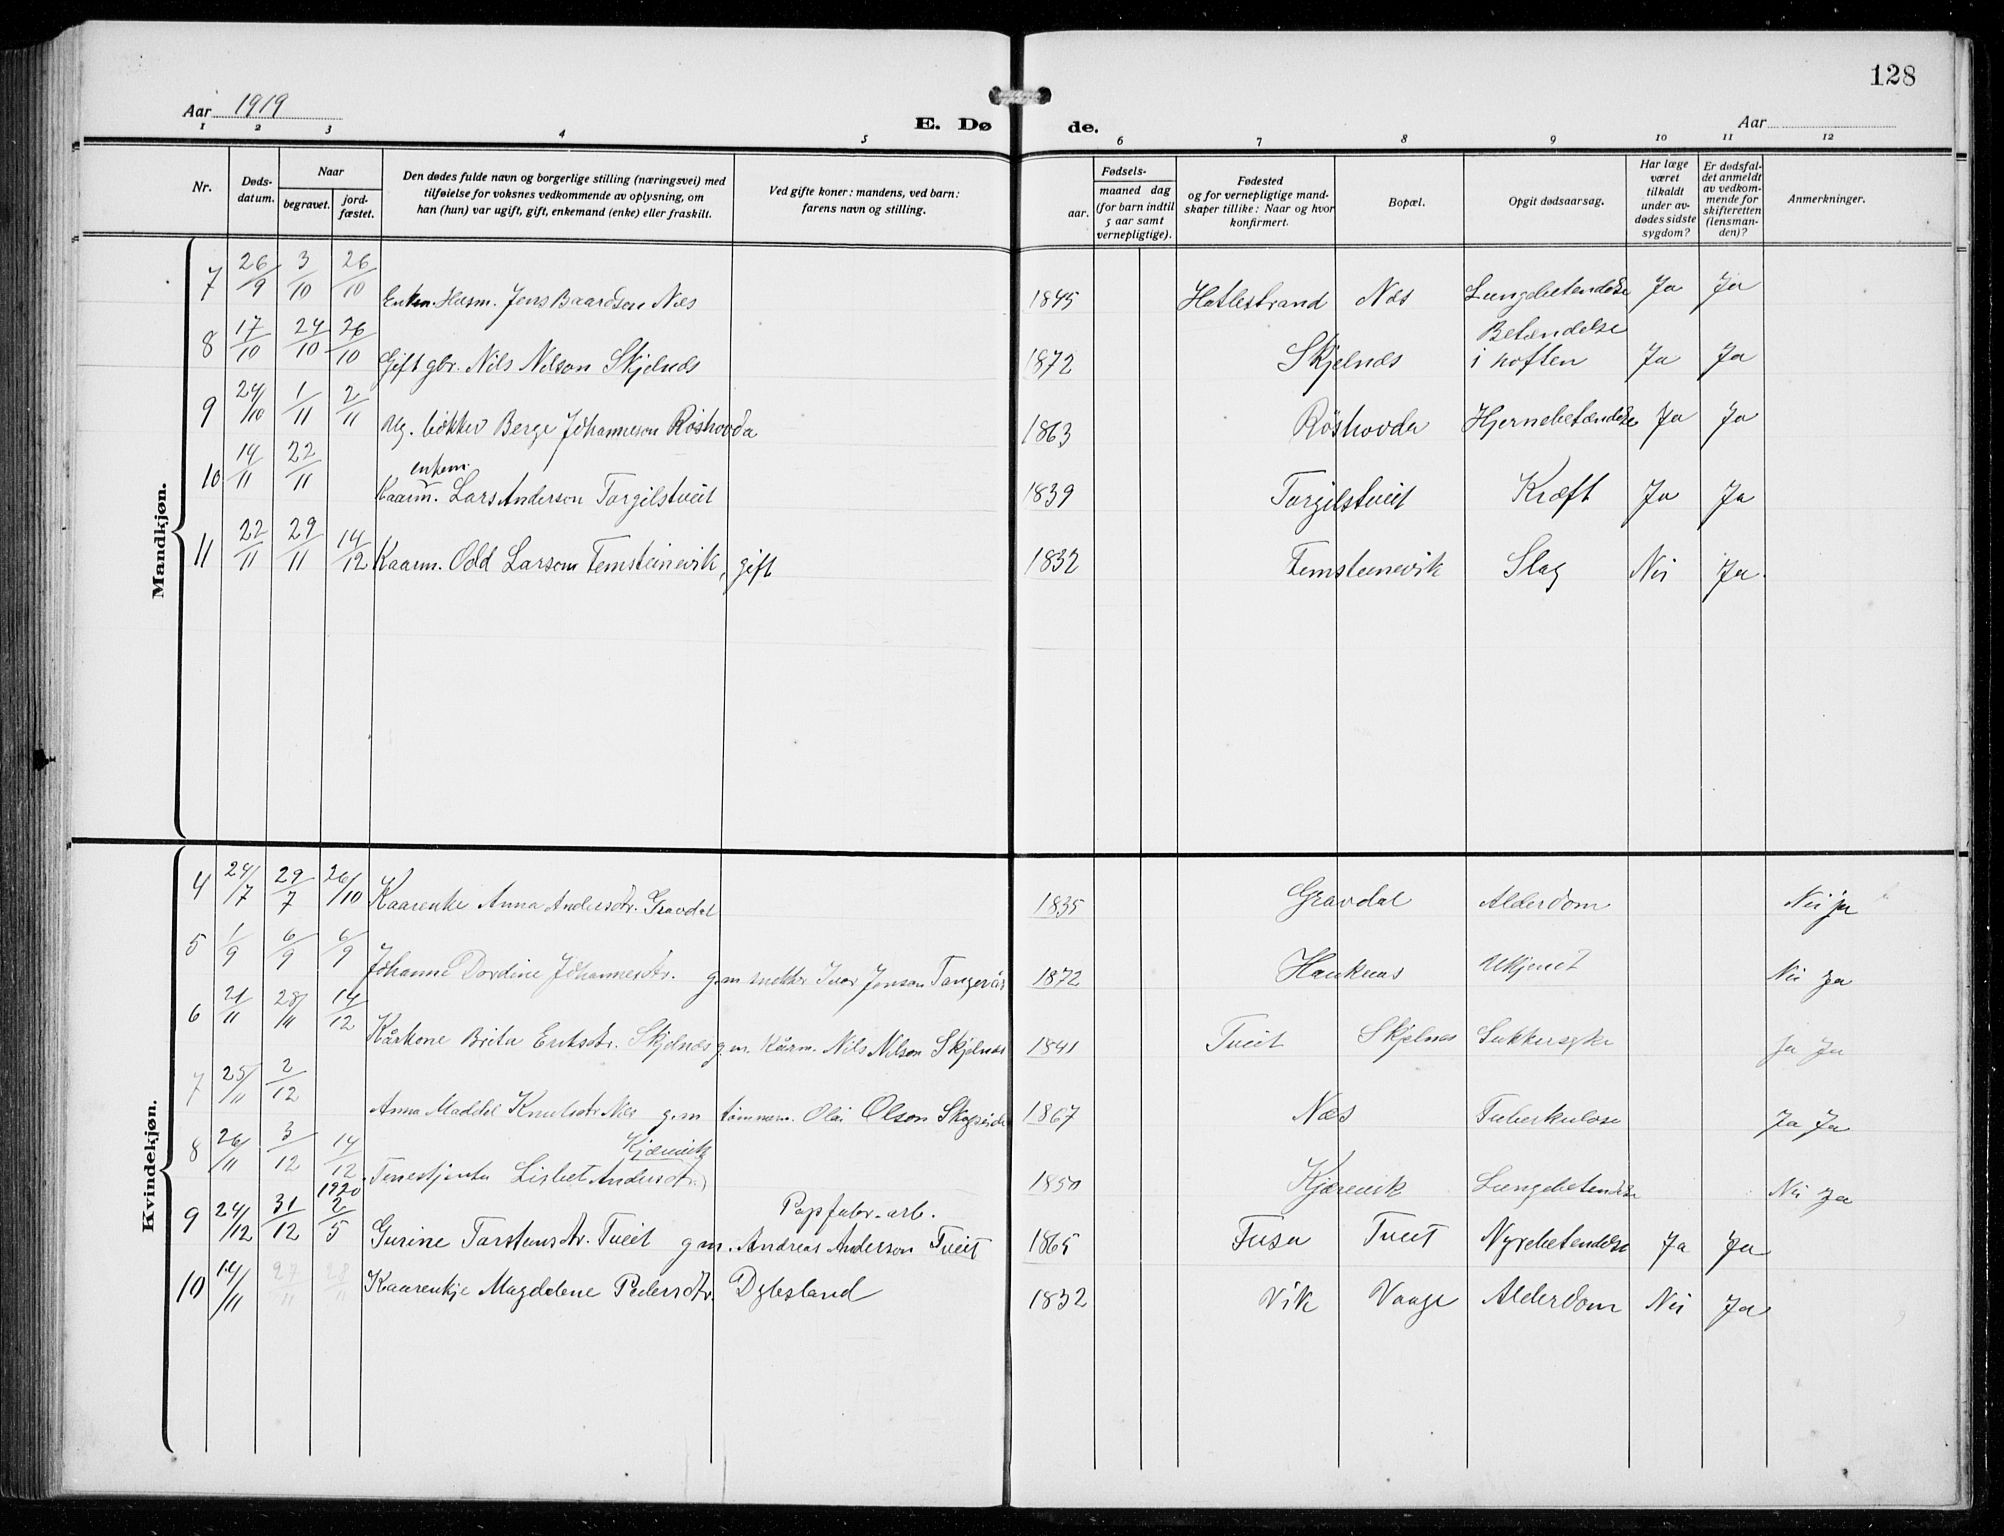 128
Aar 1919
E. Dø de.
Aar
1 2 3 4 5 6 7 8 9 10 11 12
Nr.
Døds-datum.
Naar
begravet.
jord-fæstet.
Den dødes fulde navn og borgerlige stilling (næringsvei) med
tilføielse for voksnes vedkommende av oplysning, om
han (hun) var ugift, gift, enkemand (enke) eller fraskilt.
Ved gifte koner: mandens, ved barn:
farens navn og stilling.
Fødsels-
aar.
maaned dag
(for barn indtil
5 aar samt
vernepligtige).
Fødested
og for vernepligtige mand-
skaper tillike: Naar og hvor
konfirmert.
Bopæl.
Opgit dødsaarsag.
Har læge
været
tilkaldt
under av-
dødes sidste
sygdom?
Er dødsfal-
det anmeldt
av vedkom-
mende for
skifteretten
(lensman-
den)?
Anmerkninger.
Mandkjøn.
7 26/9 3/10 26/10 Enkem. Husm. Jens Baardsen Næs 1845 Hatlestrand Næs Lungebetendelse Ja Ja
8 17/10 24/10 26/10 Gift gbr. Nils Nilson Skjelnes 1872 Skjelnæs Betændelse i hoften Ja Ja
9 24/10 1/11 2/11 Ug. bøkker Berge Johanneson Røshovda 1863 Røshovda Hjernebetændelse Ja Ja
10 14/11 22/11 Kaarm. enkem. Lars Anderson Torgilstveit 1839 Torgilstveit Kræft Ja Ja
11 22/11 29/11 14/12 Kaarm. Odd Larson Femsteinevik, gift 1832 Femsteinevik Slag Nei Ja.
Kvindekjøn.
4 24/7 29/7 26/10 Kaarenke Anna Andersdtr. Gravdal 1835 Gravdal Alderdom Nei ja
5 1/9 6/9 6/9 Johanne Dordine Johannesdtr. g.m. Iver Jonson Tangerås 1872 Hauknæs Ukjent Nei ja
6 21/11 28/11 14/12 Kårkone Brita Eriksdtr. Skjelnæs g.m. Kårm. Nils Nilson Skjelnæs 1841 Tveit Skjelnes Sukkersyke ja Ja
7 25/11 2/12 Anna Maddel Knutsdtr Næs g.m tømmerm. Olai Olson Skogseide 1867 Næs Tuberkulose Ja Ja
8 26/11 3/12 14/12 Tenestjenta Lisbet Andersdtr Kjærevik 1850 Kjærevik Lungebetendelse Nei ja
9 24/12 31/12 1920 2/5 Gurine Torstensdtr. Tveit g.m. Papfabr. arb. Andreas Anderson Tveit 1865 Fusa Tveit Nyrebetendelse Ja Ja
10 14/11 27/11 28/11 Kaarenkje Magdelene Pedersdtr. Dybesland 1832 Vik Vaage Alderdom Nei Ja